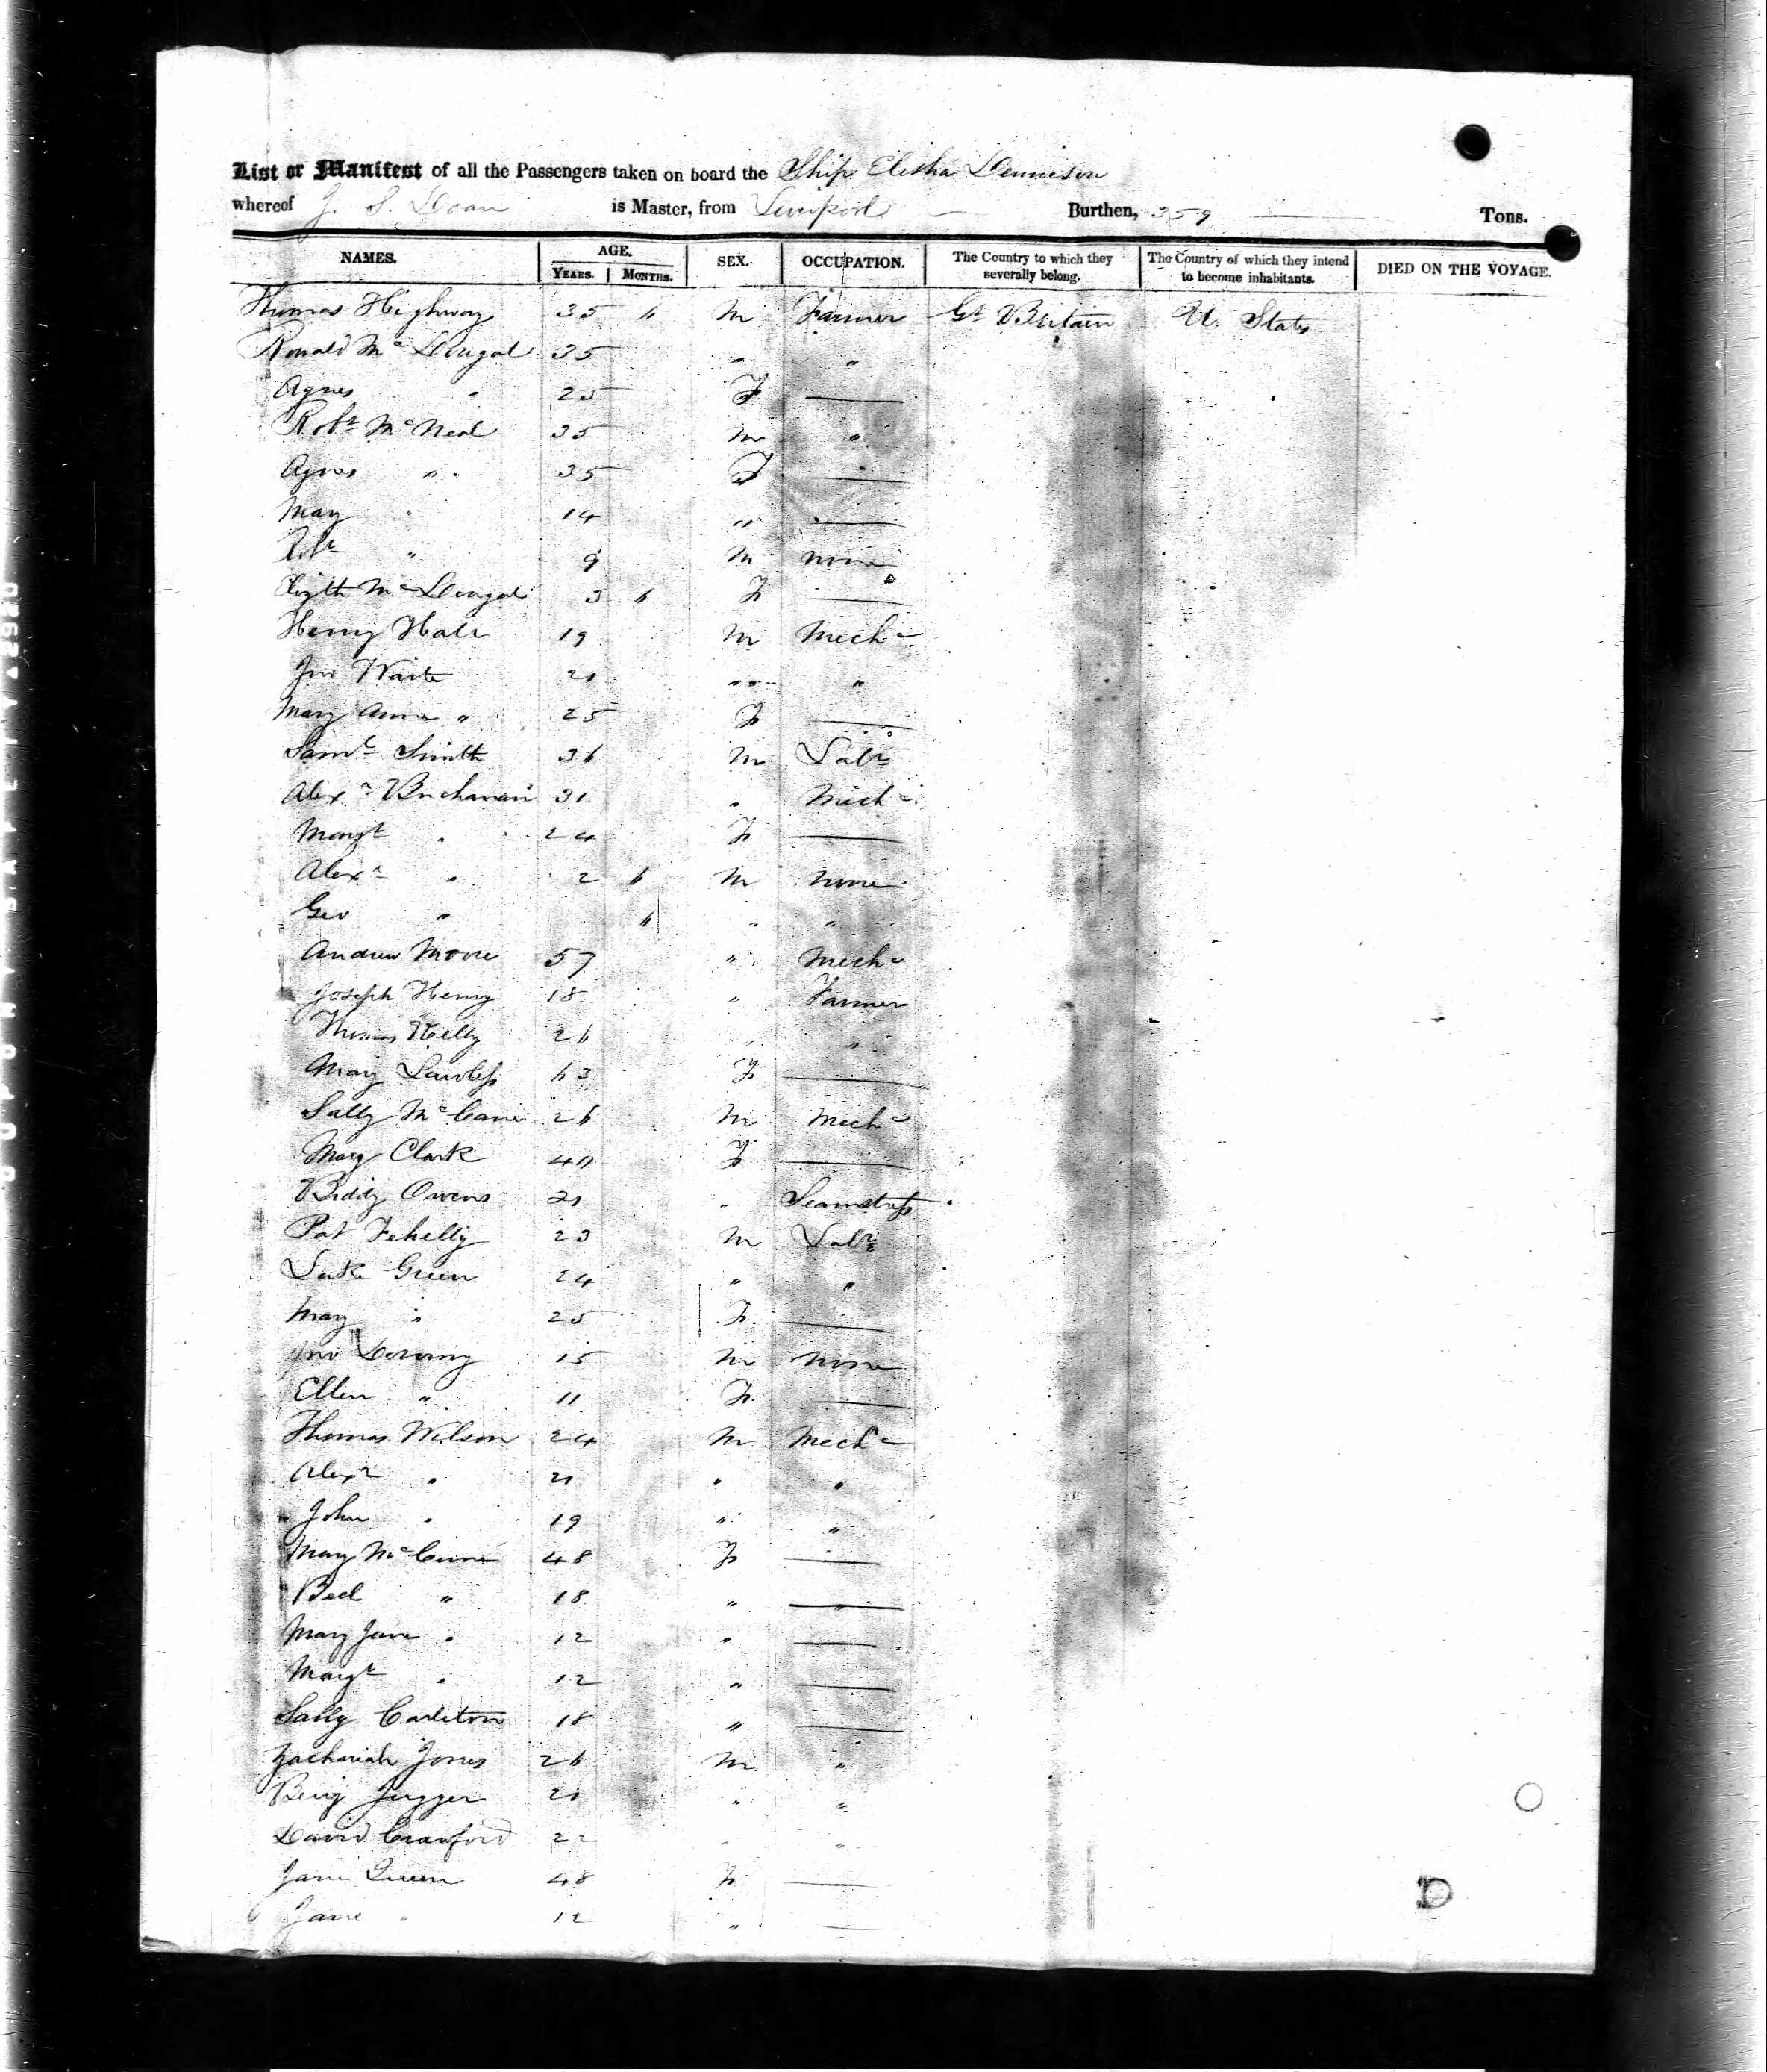 List or Manifest of all the Passengers taken on board the Ship Elisha Dennison
whereof J. S. Doan is Master, from Liverpool Burthen, 359 Tons.
NAMES. AGE. YEARS. MONTHS. SEX. OCCUPATION. The Country to which they severally belong. The Country of which they intend to become inhabitants. DIED ON THE VOYAGE.
Thomas Highway 35 " M Farmer Gt Britain U. States
Ronald McDougal 35 " "
Agnes " 25 F —
Robt McNeal 35 M "
Agnes " 35 F —
Mary " 14 " —
Robt " 9 M none
Elizth McDougal 3 6 F —
Henry Hale 19 M Mechc
Jno Waite 21 " "
Mary Anne " 25 F —
Saml Smith 36 M Labr
Alexr Buchanan 31 " Mechc
Margt " 24 F —
Alexr " 2 6 M none
Geo " 6 " "
Andrew Moore 57 " Mechc
Joseph Henry 18 " Farmer
Thomas Kelly 26 " "
Mary Lawless 63 F —
Sally McCane 26 M Mechc
Mary Clark 40 F —
Biddy Owens 21 " Seamstress
Pat Fehelly 23 M Labr
Luke Green 24 " "
Mary " 25 F —
Jno 15 M none
Ellen " 11 F —
Thomas Wilson 24 M Mechc
Alexr " 21 " "
John " 19 " "
Mary 48 F —
" 18 " —
Mary Jane " 12 " —
Margt " 12 " —
Sally Carleton 18 " —
Zachariah Jones 26 M "
Benj 21 " "
David Crawford 22 " "
Jane Queen 48 F —
Jane " 12 " —
D